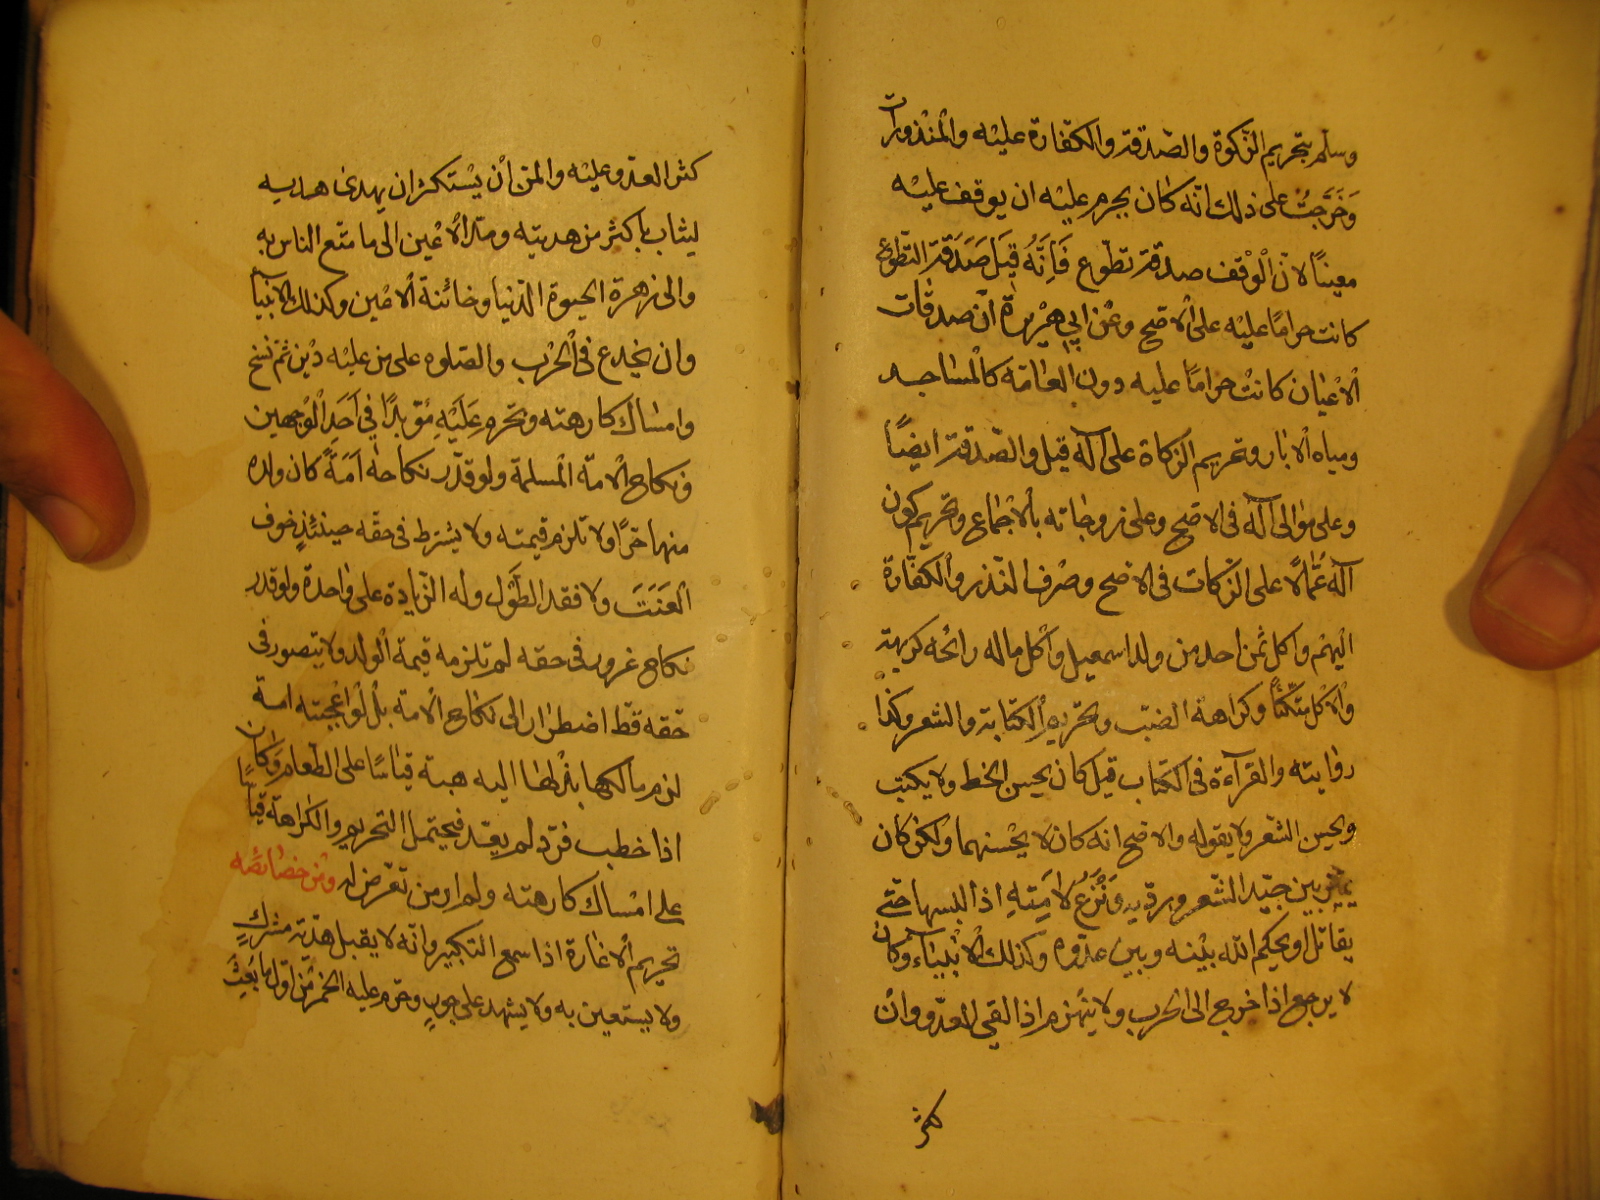 وسلم بتحريم الزكوة والصدقة والكفارة عليه والمنذورات
وَخَرَّجْتُ على ذلك انه كان يحرم عليه ان يوقف عليه
معيناً لان الوقف صدقة تطوع فَاِنَّهُ قِيَلَ صَدَقَة التطوع
كانت حراما عليه على الاصح وعن ابي هريرة ان صدقات
الاعيان كانت حراما عليه دون العامة كالمساجد
ومياه الابار وتحريم الزكاة على آله قيل والصدقة ايضاً
وعلى موالى آله فى الاصح وعلى زوجاته بالاجماع وتحريم كون
آله عُمّالاً على الزكات فى الاصح وصرف النذر والكفارة
اليهم واكل ثمن احد من ولد اسمعيل واكل ماله رائحة كريهة
والاكل متكئاً وكراهة الضب وتحريم الكتابة والشعر وكذا
روايته والقرآءة فى الكتاب قيل كان يحسن الخط ولا يكتب
ويحسن الشعر ولا يقوله والاصح انه كان لا يحسنهما ولكن كان
يميز بين جيد الشعر ورديه وَنَزْعُ لامَتِهِ اذا لبسها حتى
يقاتل او يحكم الله بينه وبين عدوه وكذلك الانبيآء وكان
لا يرجع اذا خرج الى الحرب ولا ينهزم اذا لقى العدو وان
كثر
كثر العدو عليه والمن ان يستكثر ان يهدى هديه
ليثاب باكثر من هديته ومدّ الاعين الى ما متع الناس به
والى زهرة الحيوة الدنيا وخائنة الاعين وكذلك الانبيآ
وان يخدع فى الحرب والصلوه على من عليه دين ثم نسخ
وامساك كارهته وتحرم عَلَيْهِ مُؤبداً في اَحَدِ الْوجهين
ونكاح الامة المسلمة ولو قدّر نكاحه اَمَةً كان ولده
منها حرًا ولا تلزم قيمته ولا يشترط فى حقه حينئذٍ خوف
العَنَتَ ولا فقد الطَوْل وله الزيادة على واحدة ولو قدر
نكاح غرور فى حقه لم تلزمه قيمة الولد ولا يتصور فى
حقه قط اضطرار الى نكاح الامة بل لو اعجبته امة
لزم مالكها بذلها اليه هبة قياسًا على الطعام وكان
اذا خطب فرد لم يعد فيحتمل التحريم والكراهة قياساً
على امساك كارهته ولم ار من تعرض له ومن خصائصه
تحريم الاغارة اذا سمع التكبير وانه لا يقبل هدية مشركٍ
ولا يستعين به ولا يشهد على جورٍ وحرم عليه الخمر من اول ما بُعِثَ